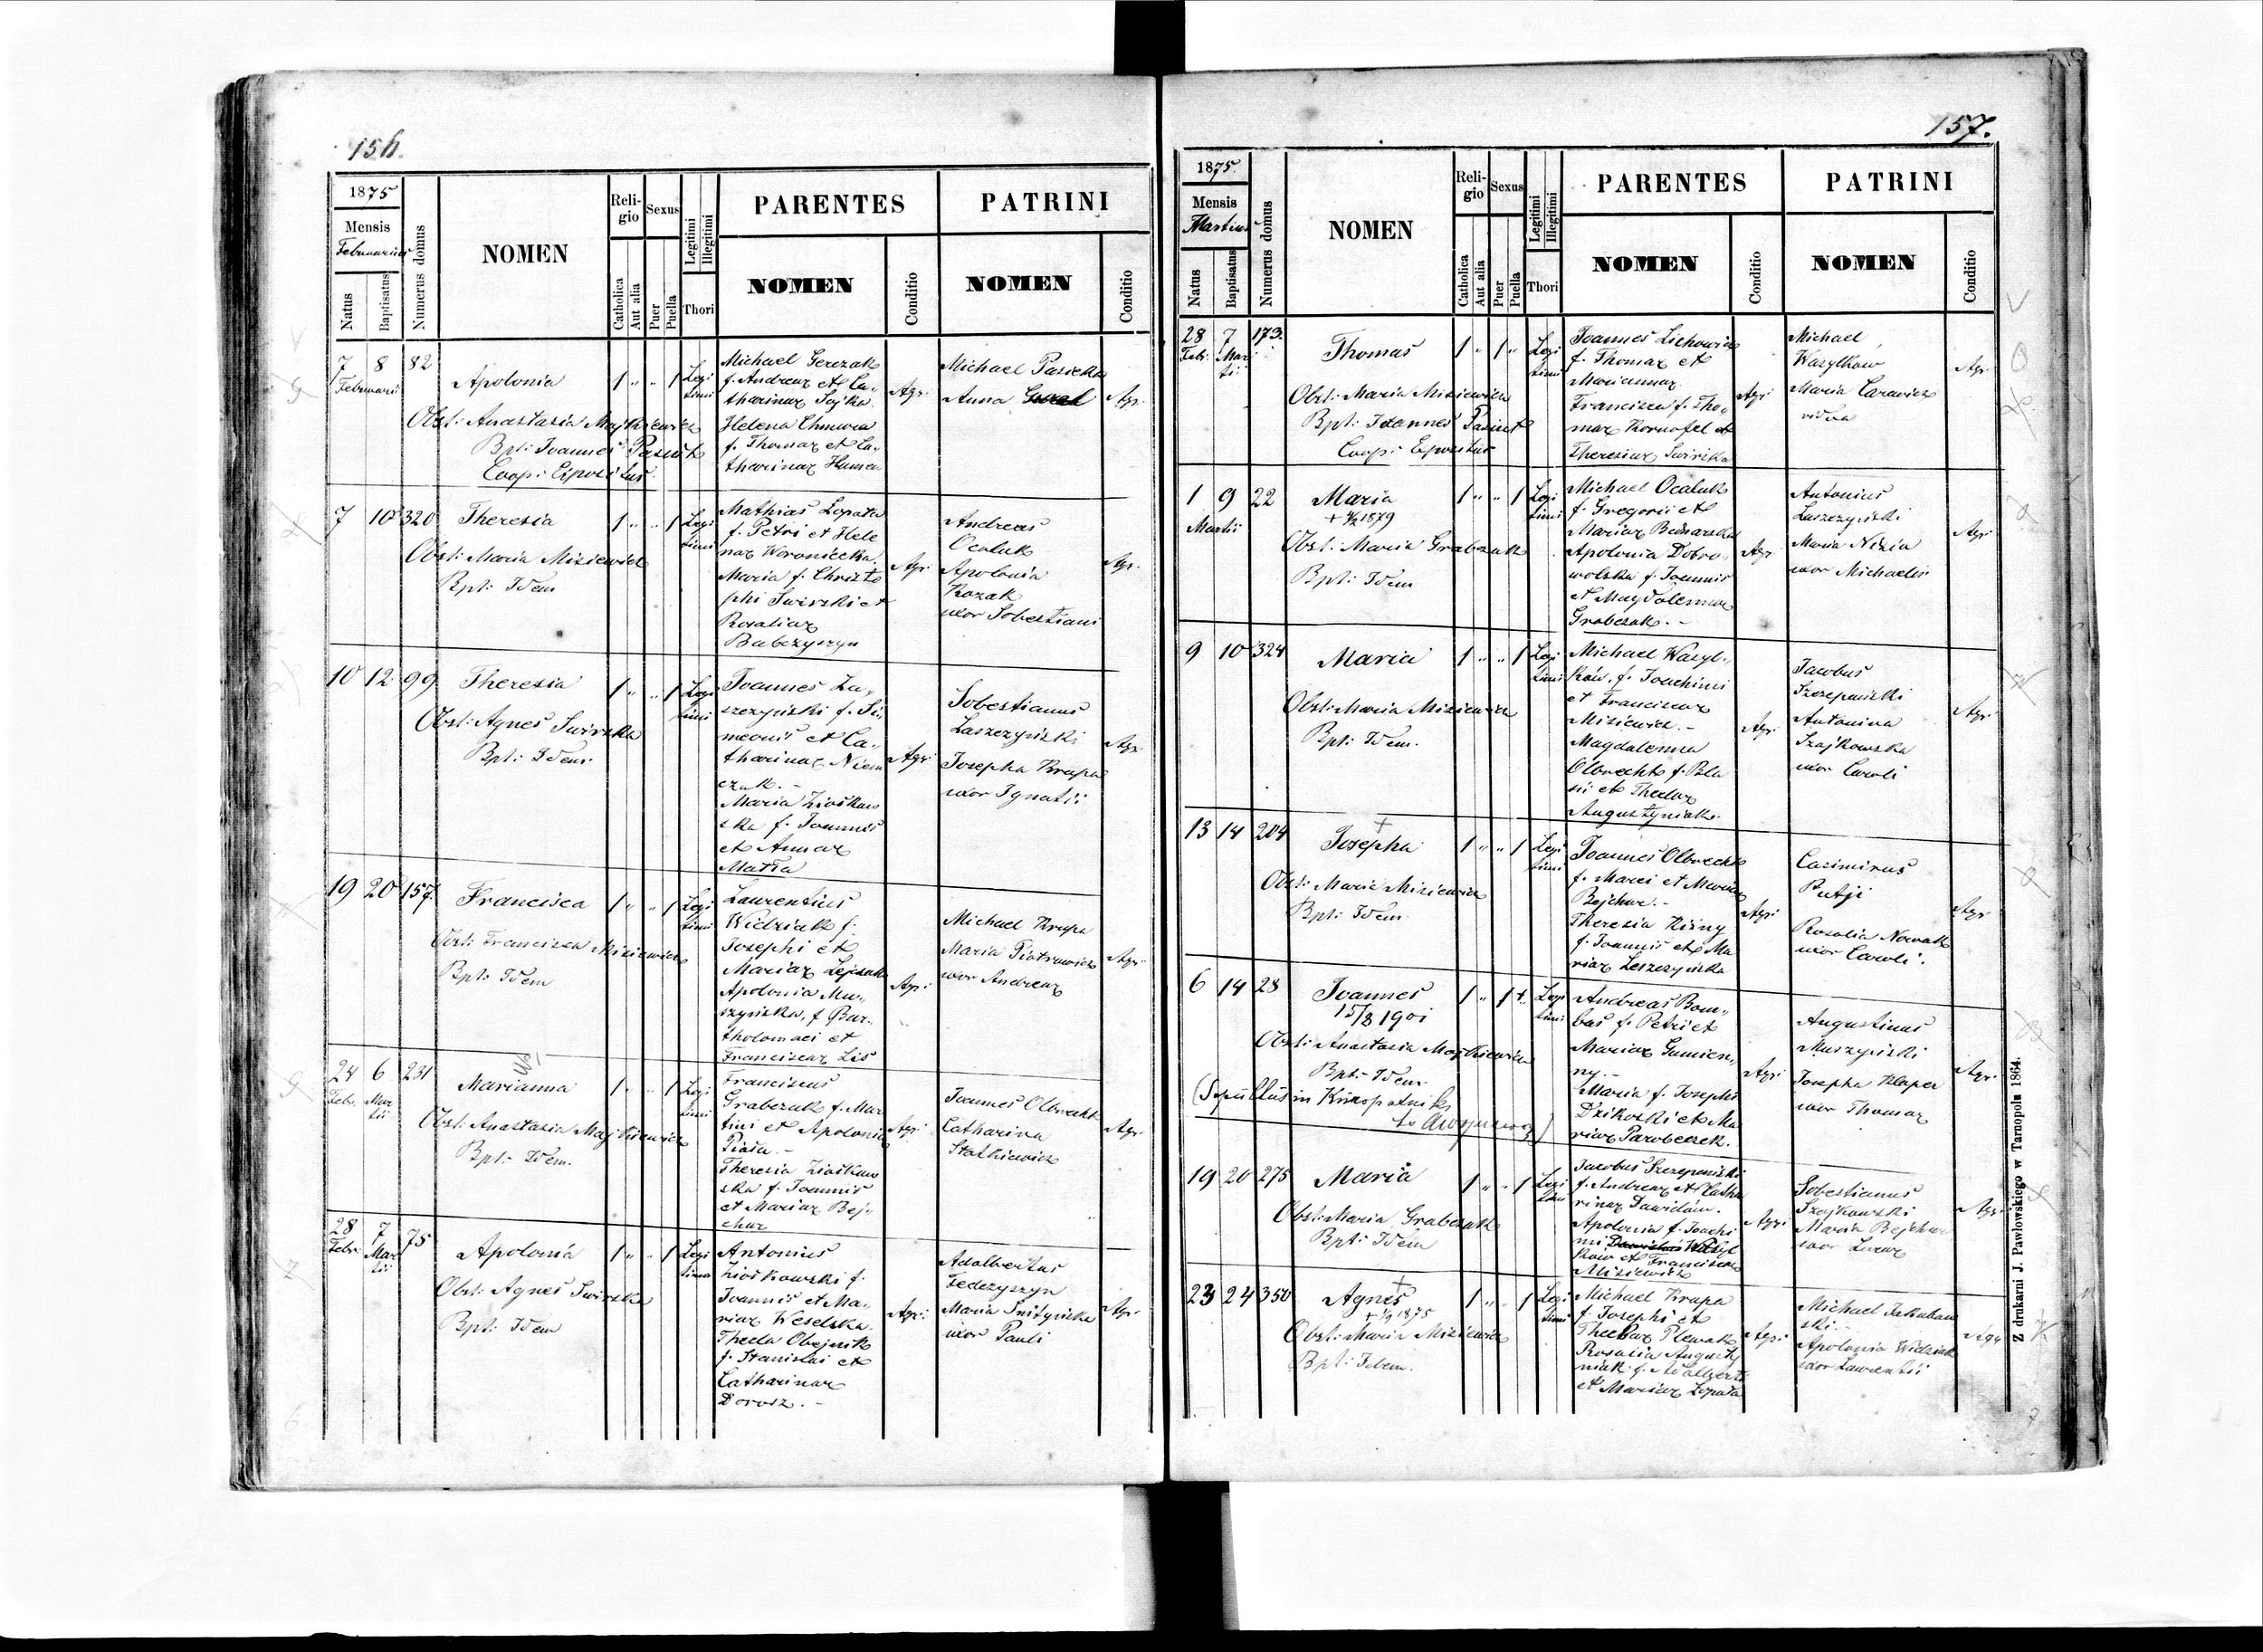 156.
1875
Mensis
Februarius
Natus
Baptisatus
Numerus domus
NOMEN
Religio
Catholica
Aut alia
Sexus
Puer
Puella
Legitimi
Illegitimi
Thori
PARENTES
NOMEN
Conditio
PATRINI
NOMEN
Conditio
7 8 82
Februarii
Apolonia
1 " " 1 Legi
timi
Obst: Anastasia Majkiewicz
Bpt: Joannes Pasiut
Coop: Expositus
Michael Gerczak
f. Andreæ et Ca,,
tharinæ Sojka
Helena Chmura
f. Thomæ et Ca,,
tharinæ Humen
Agr:
Michael Pasieka
Anna
Agr.
7 10 320
Theresia
1 " " 1 Legi
timi
Obst: Maria Misiewicz
Bpt: Idem
Mathias Lopata
f. Petri et Hele
næ Woroniecka.
Maria f. Christo
phi Swirski et
Rosaliæ
Babczyszyn
Agr:
Andreas
Ocaluk
Apolonia
Kozak
uxor Sobestiani
Agr.
10 12 99
Theresia
1 " " 1 Legi
timi
Obst: Agnes Swirska
Bpt: Idem
Joannes La,,
szczyński f. Si,,
meonis et Ca,,
tharinæ Niem
czak. -
Maria Ziołkow
ska f. Joannis
et Annæ
Matła
Agr:
Sobestianus
Laszczyński
Josepha Krupa
uxor Ignatii
Agr.
19 20 157.
Francisca
1 " " 1 Legi
timi
Obst: Francisca Misiewicz
Bpt: Idem
Laurentius
Widziak f.
Josephi et
Mariæ Lejczak
Apolonia Mu,,
szyńska, f. Bar,,
tholomaei et
Franciscæ Lis
Agr:
Michael Krupa
Maria Piotrowicz
uxor Andreæ
Agr.
24 6 231
Feb. Mar
tii
Marianna
1 " " 1 Legi
timi
Obst: Anastasia Majkiewicz
Bpt:- Idem.
Franciscus
Grabczak f. Mar
tini et Apoloniæ
Theresia Ziołkow
ska f. Joannis
et Mariæ Bej,,
chur
Agr:
Joannes Olbrecht
Catharina
Statkiewicz
Agr.
28 7 75
Febr. Mar
tii
Apolonia
1 " " 1 Legi
timi
Obst: Agnes Swirska
Bpt: Idem
Antonius
Ziołkowski f.
Joannis et Ma,,
riæ Weselska.
Thecla Olejnik
f. Stanislai et
Catharinæ
Dorosz. -
Agr:
Adalbertus
Fedczyszyn
Maria Śnityńska
uxor Pauli
Agr.
157.
1875.
Mensis
Martius
Natus
Baptisatus
Numerus domus
NOMEN
Religio
Catholica
Aut alia
Sexus
Puer
Puella
Legitimi
Illegitimi
Thori
PARENTES
NOMEN
Conditio
PATRINI
NOMEN
Conditio
28 7 173.
Feb: Mar
tii
Thomas
1 " 1 " Legi
timi
Obst: Maria Misiewicz
Bpt: Joannes Pasiut
Coop: Expositus
Joannes Lichowicz
f. Thomæ et
Mariannæ
Francisca f. Tho,,
mæ Kornafel et
Theresiæ Swirska
Agr:
Michael
Wasylkow
Maria Carewicz
vidua
Agr.
1 9 22
Martii
Maria
+ 4/2 1879
1 " " 1 Legi
timi
Obst: Maria Grabczak
Bpt: Idem
Michael Ocaluk
f. Gregorii et
Mariæ Bednarska
Apolonia Dobro,,
wolska f. Joannis
et Magdalennæ
Grabczak. -
Agr.
Antonius
Laszczyński
Maria Nizia
uxor Michaelis
Agr.
9 10 324
Maria
1 " " 1 Legi
timi
Obst: Maria Misiewicz
Bpt: Idem.
Michael Wasyl,,
ków, f. Joachimi
et Franciscæ
Misiewicz. -
Magdalenna
Olbrecht f. Bla
sii et Theclæ
Augustyniak.
Agr:
Jacobus
Szczepański
Antonina
Szajkowska
uxor Caroli
Agr.
13 14 204
+
Josepha
1 " " 1 Legi
timi
Obst: Maria Misiewicz
Bpt: Idem
Joannes Olbrecht
f. Marci et Mariæ
Bejchur. -
Theresia Niżny
f. Joannis et Ma
riæ Leszczyńska
Agr:
Casimirus
Putji
Rosalia Nowak
uxor Caroli.
Agr.
6 14 28
Joannes
15/8 1901
1 " 1 " Legi
timi
Obst: Anastasia Majkiewicz
Bpt:- Idem.
(Sepultus in Krzropatnik
Andreas Bom,,
bas f. Petri et
Mariæ Gumien,,
ny. -
Maria f. Josephi
Dzikoski et Ma
riæ Parobeczek.
Agr:
Augustinus
Muszyński
Josepha Klaper
uxor Thomæ
Agr.
19 20 275
Maria
1 " " 1 Legi
timi
Obst: Maria Grabczak
Bpt: Idem
Jacobus Szczepański
f. Andreæ et Catha
rinæ Dawidów.
Apolonia f. Joachi
mi Wasyl
ków et Franciscæ
Misiewicz
Agr:
Sobestianus
Szajkowski
Maria Bejchur
uxor Lucæ
Agr.
23 24 350
+
Agnes
1 " " 1 Legi
timi
Obst: Maria Misiewicz
Bpt: Idem.
Michael Krupa
f. Josephi et
Theclæ Plewak
Rosalia Augusty
niak f. Adalberti
et Mariæ Lopata
Agr:
Michael Jakubow
ski -
Apolonia Widziak
uxor Laurentii
Agr
Z drukarni J. Pawłowskiego w Tarnopolu 1864.